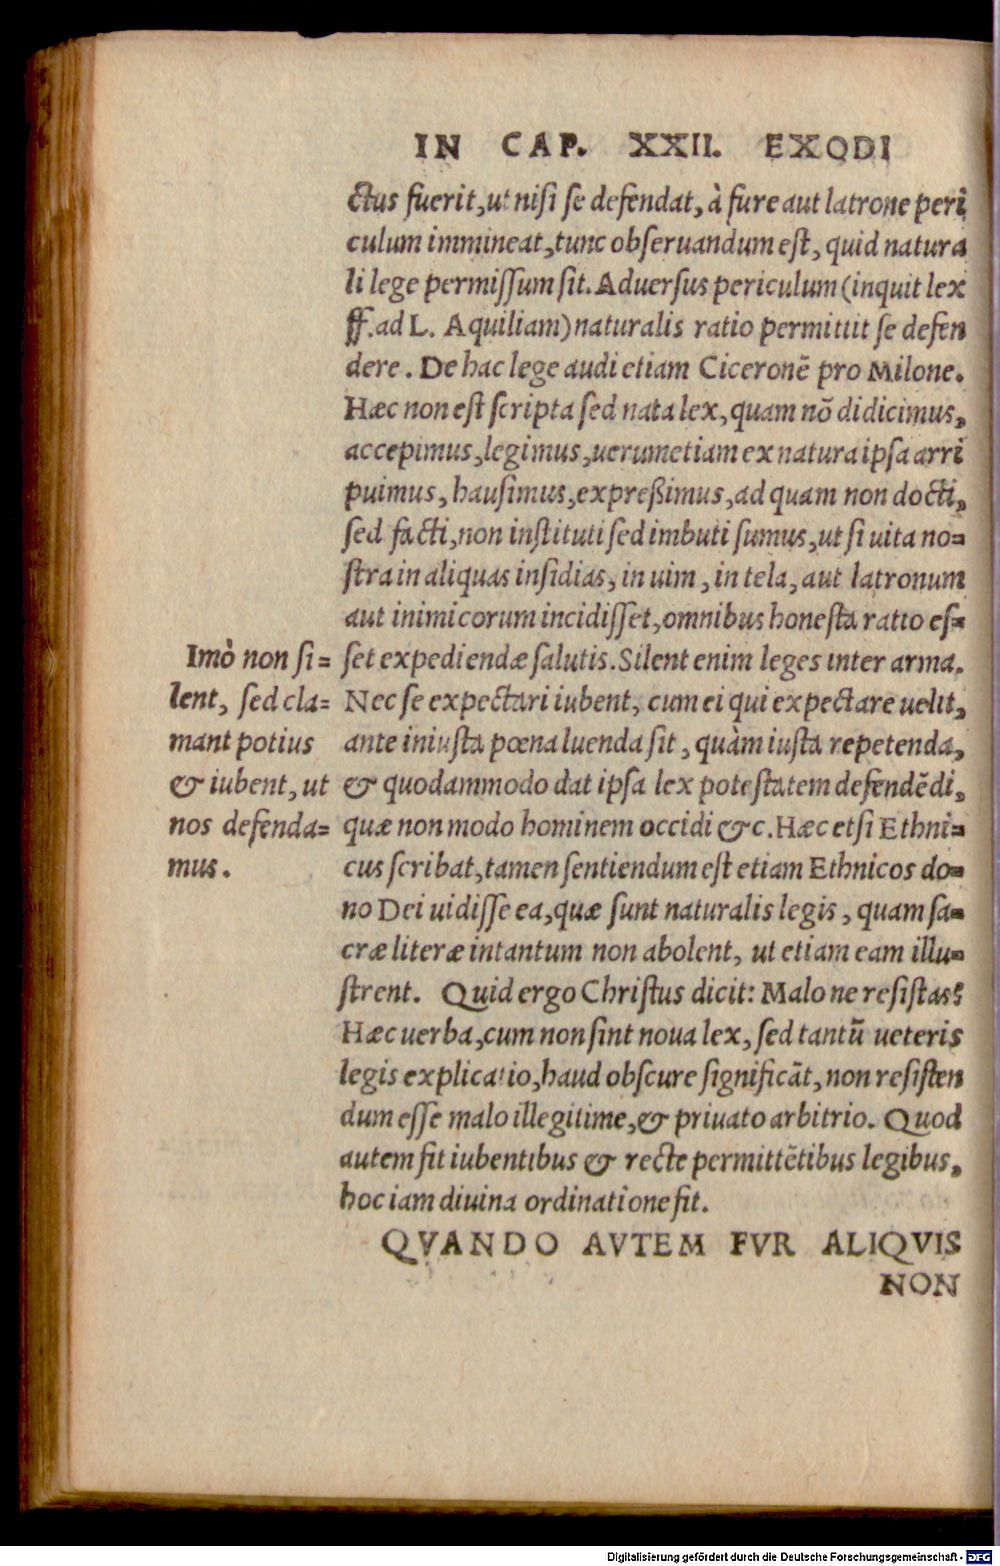 IN CAP. XXII. EXODI
ctus fuerit, ut nisi se defendat, à fure aut latrone peri
culum immineat, tunc obseruandum est, quid natura
li lege permissum sit. Aduersus periculum (inquit lex
ff. ad L. Aquiliam) naturalis ratio permittit se defen
dere. De hac lege audi etiam Ciceronē pro Milone.
Hæc non est scripta sed nata lex, quam nō didicimus,
accepimus, legimus, uerumetiam ex natura ipsa arri
puimus, hausimus, expreßimus, ad quam non docti,
sed facti, non instituti sed imbuti sumus, ut si uita no=
stra in aliquas insidias, in uim, in tela, aut latronum
aut inimicorum incidisset, omnibus honesta ratio es=
set expediendæ salutis. Silent enim leges inter arma.
Nec se expectari iubent, cum ei qui expectare uelit,
ante iniusta pœna luenda sit, quàm iusta repetenda,
& quodammodo dat ipsa lex potestatem defendēdi,
quæ non modo hominem occidi &c. Hæc etsi Ethni=
cus scribat, tamen sentiendum est etiam Ethnicos do=
no Dei uidisse ea, quæ sunt naturalis legis, quam sa=
cræ literæ intantum non abolent, ut etiam eam illu=
strent. Quid ergo Christus dicit: Malo ne resistas?
Hæc uerba, cum non sint noua lex, sed tantū ueteris
legis explicatio, haud obscure significāt, non resisten
dum esse malo illegitime, & priuato arbitrio. Quod
autem fit iubentibus & recte permittētibus legibus,
hoc iam diuina ordinatione fit.
QVANDO AVTEM FVR ALIQVIS
NON
Imò non si=
lent, sed cla=
mant potius
& iubent, ut
nos defenda=
mus.
Digitalisierung gefördert durch die Deutsche Forschungsgemeinschaft - DFG